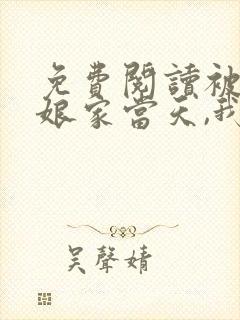 免費閱讀被
娘家當天,我
吳聲婧